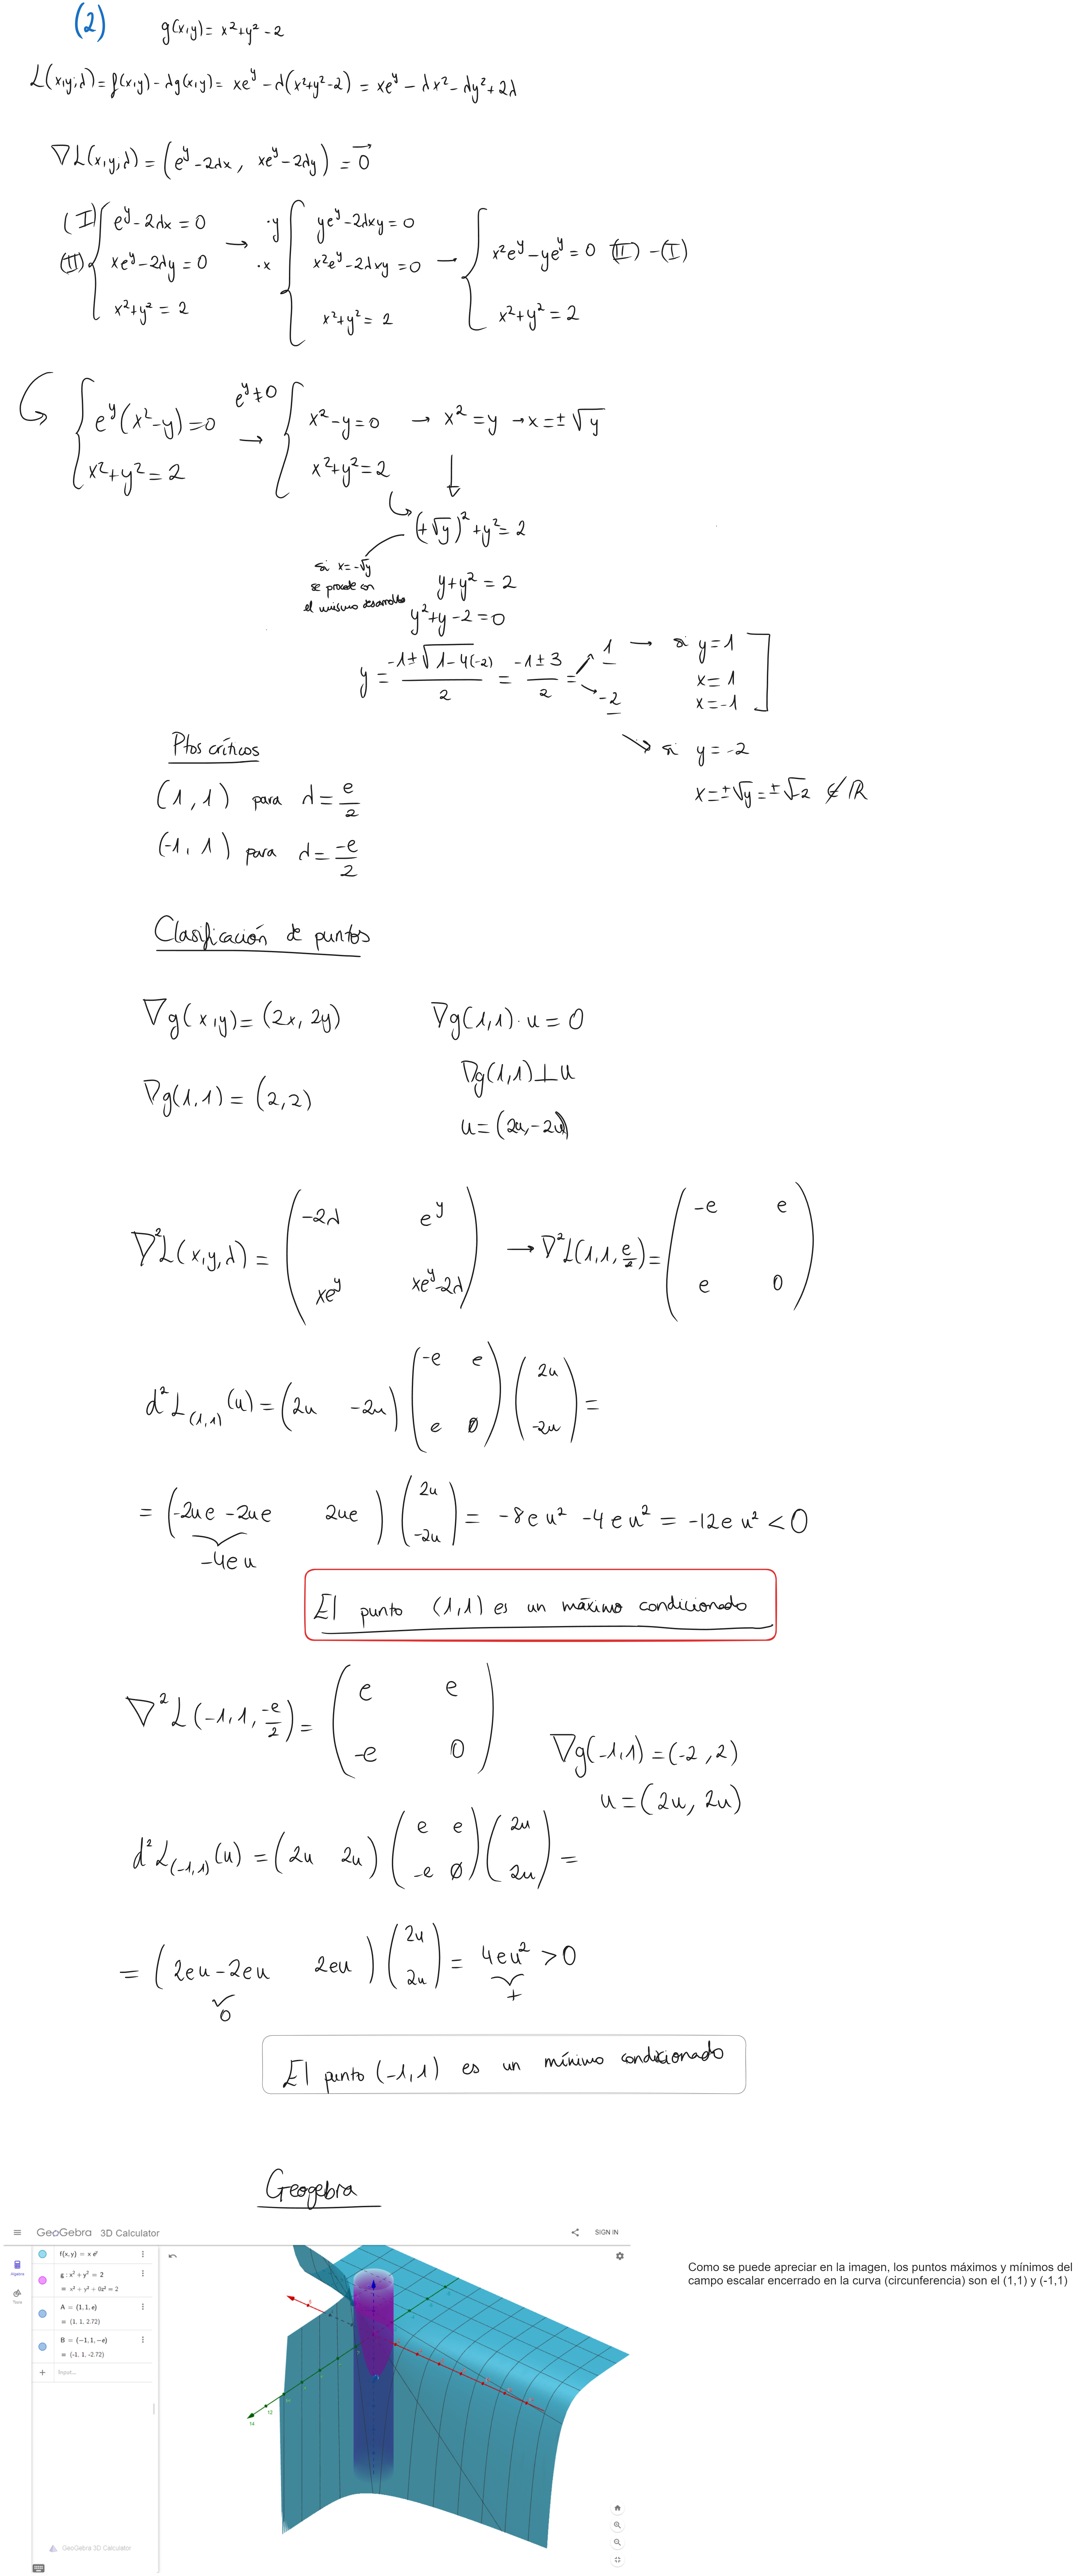 (2) g(x,y) = x²+y² - 2
L(x,y;λ) = f(x,y) - λg(x,y) = xe^y - λ(x²+y²-2) = xe^y - λx² - λy² + 2λ
∇L(x,y,λ) = (e^y - 2λx, xe^y - 2λy) = 0⃗
(I) { e^y - 2λx = 0 → ·y { ye^y - 2λxy = 0
(II) { xe^y - 2λy = 0 ·x { x²e^y - 2λxy = 0 → { x²e^y - ye^y = 0 (II) - (I)
x²+y² = 2 x²+y² = 2 x²+y² = 2
{ e^y(x²-y) = 0 e^y≠0 → { x² - y = 0 → x² = y → x = ±√y
x²+y² = 2 x²+y² = 2
(+√y)² + y² = 2
si x = -√y
se procede con
el mismo desarrollo
y + y² = 2
y² + y - 2 = 0
y = (-1 ± √(1-4(-2)))/2 = (-1 ± 3)/2 = 1 → si y = 1
x = 1
-2 x = -1
si y = -2
x = ±√y = ±√-2 ∉ ℝ
Ptos críticos
(1, 1) para λ = e/2
(-1, 1) para λ = -e/2
Clasificación de puntos
∇g(x,y) = (2x, 2y) ∇g(1,1)·u = 0
∇g(1,1) ⊥ u
∇g(1,1) = (2,2)
u = (2u, -2u)
∇²L(x,y,λ) = ( -2λ e^y ; xe^y xe^y-2λ ) → ∇²L(1,1,e/2) = ( -e e ; e 0 )
d²L(1,1)(u) = (2u -2u) ( -e e ; e 0 ) ( 2u ; -2u ) =
= (-2ue - 2ue 2ue) ( 2u ; -2u ) = -8eu² - 4eu² = -12eu² < 0
-4eu
El punto (1,1) es un máximo condicionado
∇²L(-1,1,-e/2) = ( e e ; -e 0 )
∇g(-1,1) = (-2,2)
u = (2u, 2u)
d²L(-1,1)(u) = (2u 2u) ( e e ; -e 0 ) ( 2u ; 2u ) =
= (2eu - 2eu 2eu) ( 2u ; 2u ) = 4eu² > 0
0 +
El punto (-1,1) es un mínimo condicionado
Geogebra
GeoGebra 3D Calculator SIGN IN
f(x,y) = x e^y
g : x² + y² = 2
= x² + y² + 0z² = 2
A = (1, 1, e)
= (1, 1, 2.72)
B = (-1, 1, -e)
= (-1, 1, -2.72)
Input...
14
12
GeoGebra 3D Calculator
Como se puede apreciar en la imagen, los puntos máximos y mínimos del
campo escalar encerrado en la curva (circunferencia) son el (1,1) y (-1,1)